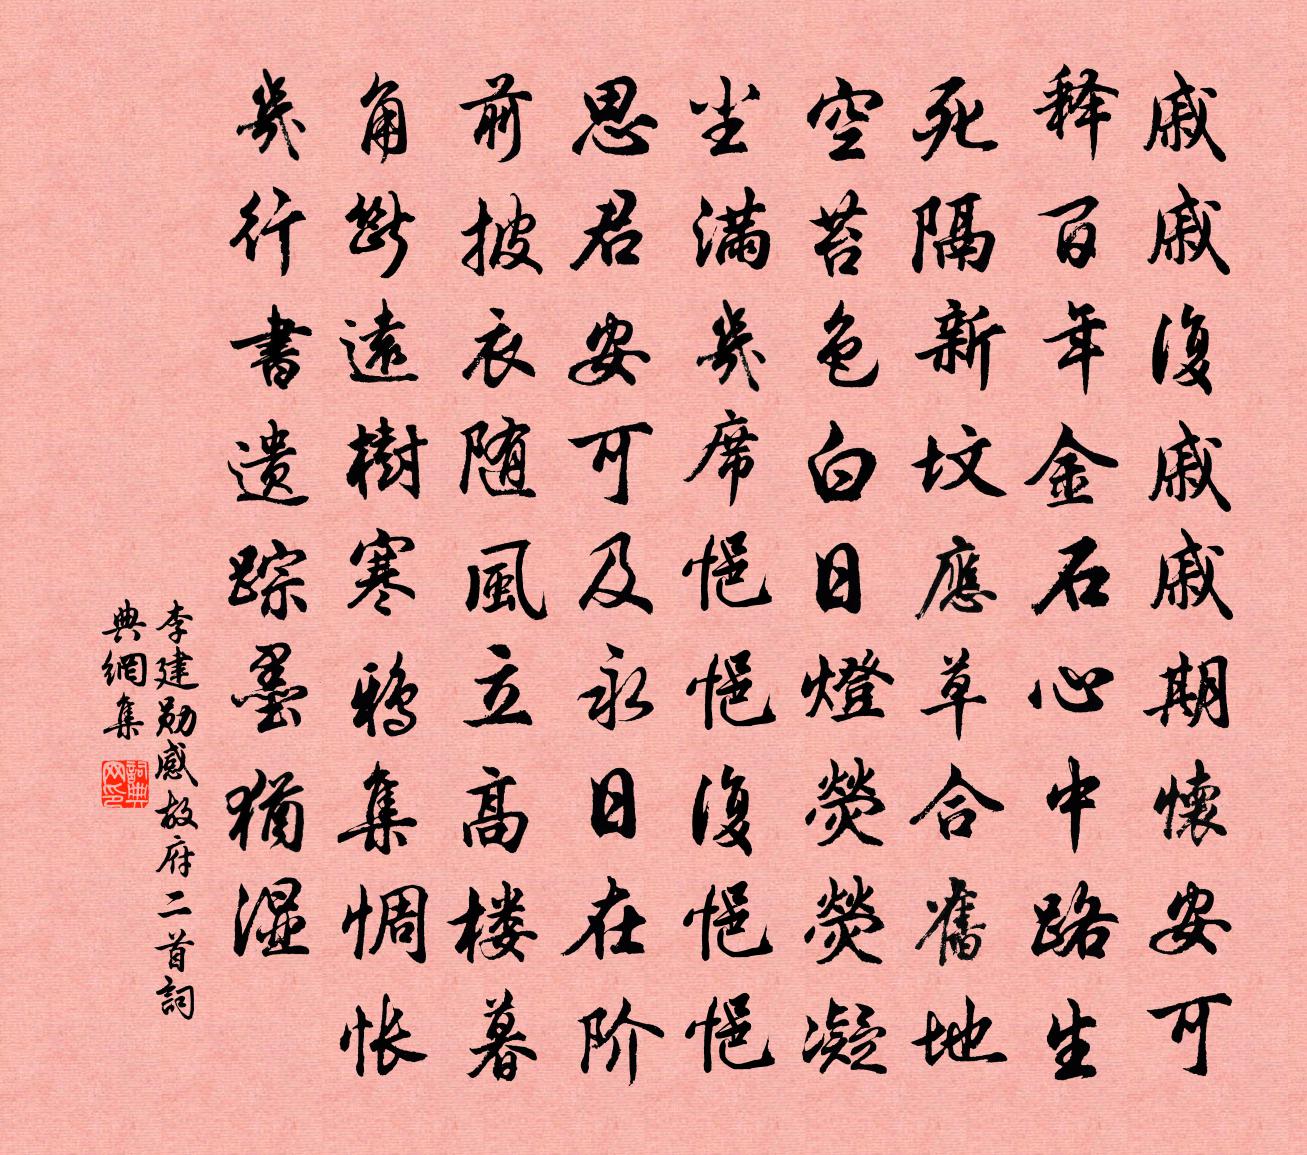 戚戚復戚戚期懷安可
释百年金石心中路生
死隔新坟應草合舊地
空苔色白日燈熒熒凝
尘满幾席悒悒復悒悒
思君安可及永日在阶
前披衣随風立高楼暮
角斷遠樹寒鸦集惆怅
幾行書遗踪墨猶湿
李建勛感故府二首詞
典網集
詞典网